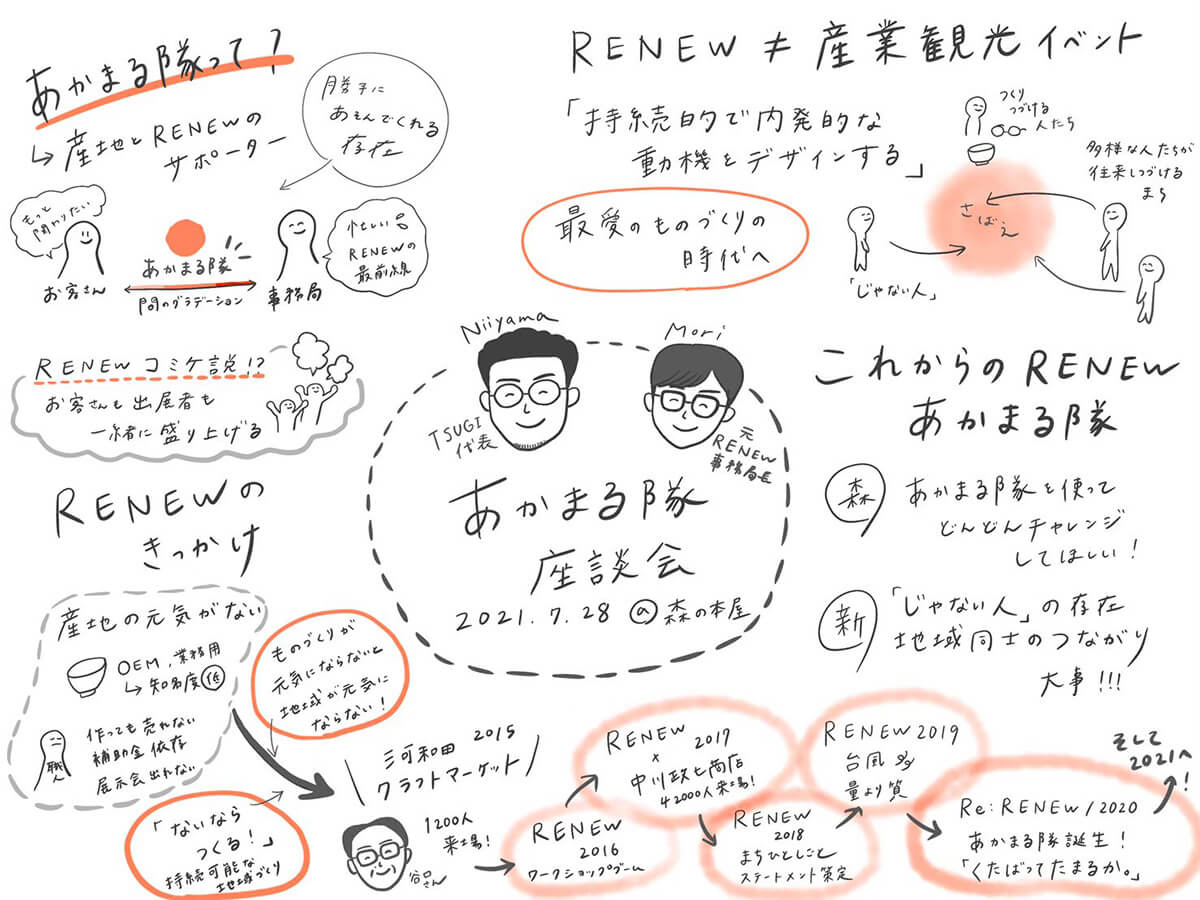 あかまる隊って？
↳産地とRENEWの
サポーター
勝手に
あそんでくれる
存在
もっと
関わりたい
お客さん
あかまる隊
間のグラデーション
事務局
忙しい
RENEWの
最前線
RENEWコミケ説!?
お客さんも出展者も
一緒に盛り上げる
RENEW≠産業観光イベント
「持続的で内発的な
動機をデザインする」
最愛のものづくりの
時代へ
つくり
つづける
人たち
さばえ
多様な人たちが
往来しつづける
まち
「じゃない人」
Niiyama
TSUGI
代表
Mori
元
RENEW
事務局長
あかまる隊
座談会
2021.7.28 @森の本屋
これからのRENEW
あかまる隊
森
あかまる隊を使って
どんどんチャレンジ
してほしい！
新
「じゃない人」の存在
地域同士のつながり
大事!!!
RENEWの
きっかけ
産地の元気がない
OEM，業務用
↳知名度低
職人
作っても売れない
補助金依存
展示会出れない
ものづくりが
元気にならないと
地域が元気に
ならない！
「ないなら
つくる！」
持続可能な
地域づくり
三河和田 2015
クラフトマーケット
1200人
来場！
谷口さん
RENEW
2016
ワークショップブーム
RENEW
× 2017
中川政七商店
42000人来場！
RENEW
2018
まちひとしごと
ステートメント策定
RENEW 2019
台風
量より質
Re:RENEW/2020
あかまる隊誕生！
「くたばってたまるか。」
そして
2021へ！